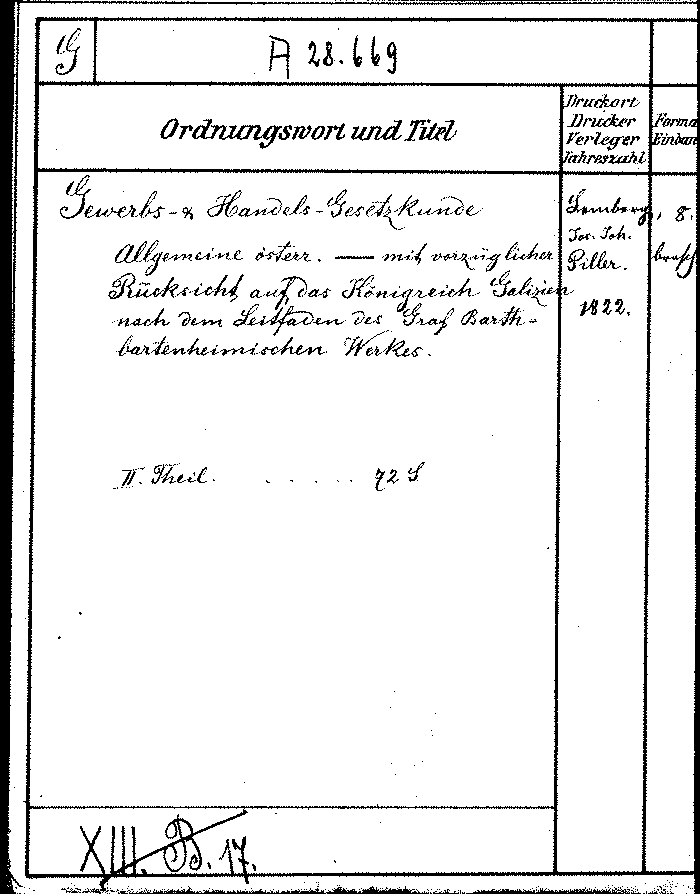 G
A 28.669
Ordnungswort und Titel
Druckort
Drucker
Verleger
Jahreszahl
Forma
Einban
Gewerbs- & Handels-Gesetzkunde
Allgemeine österr. — mit vorzüglicher
Rücksicht auf das Königreich Galizien
nach dem Leitfaden des Graf Barth-
bartenheimischen Werkes.
Lemberg,
Jos. Joh.
Piller.
1822.
8.
brosch
II. Theil. . . . . . 72 S
XIII. B. 17.